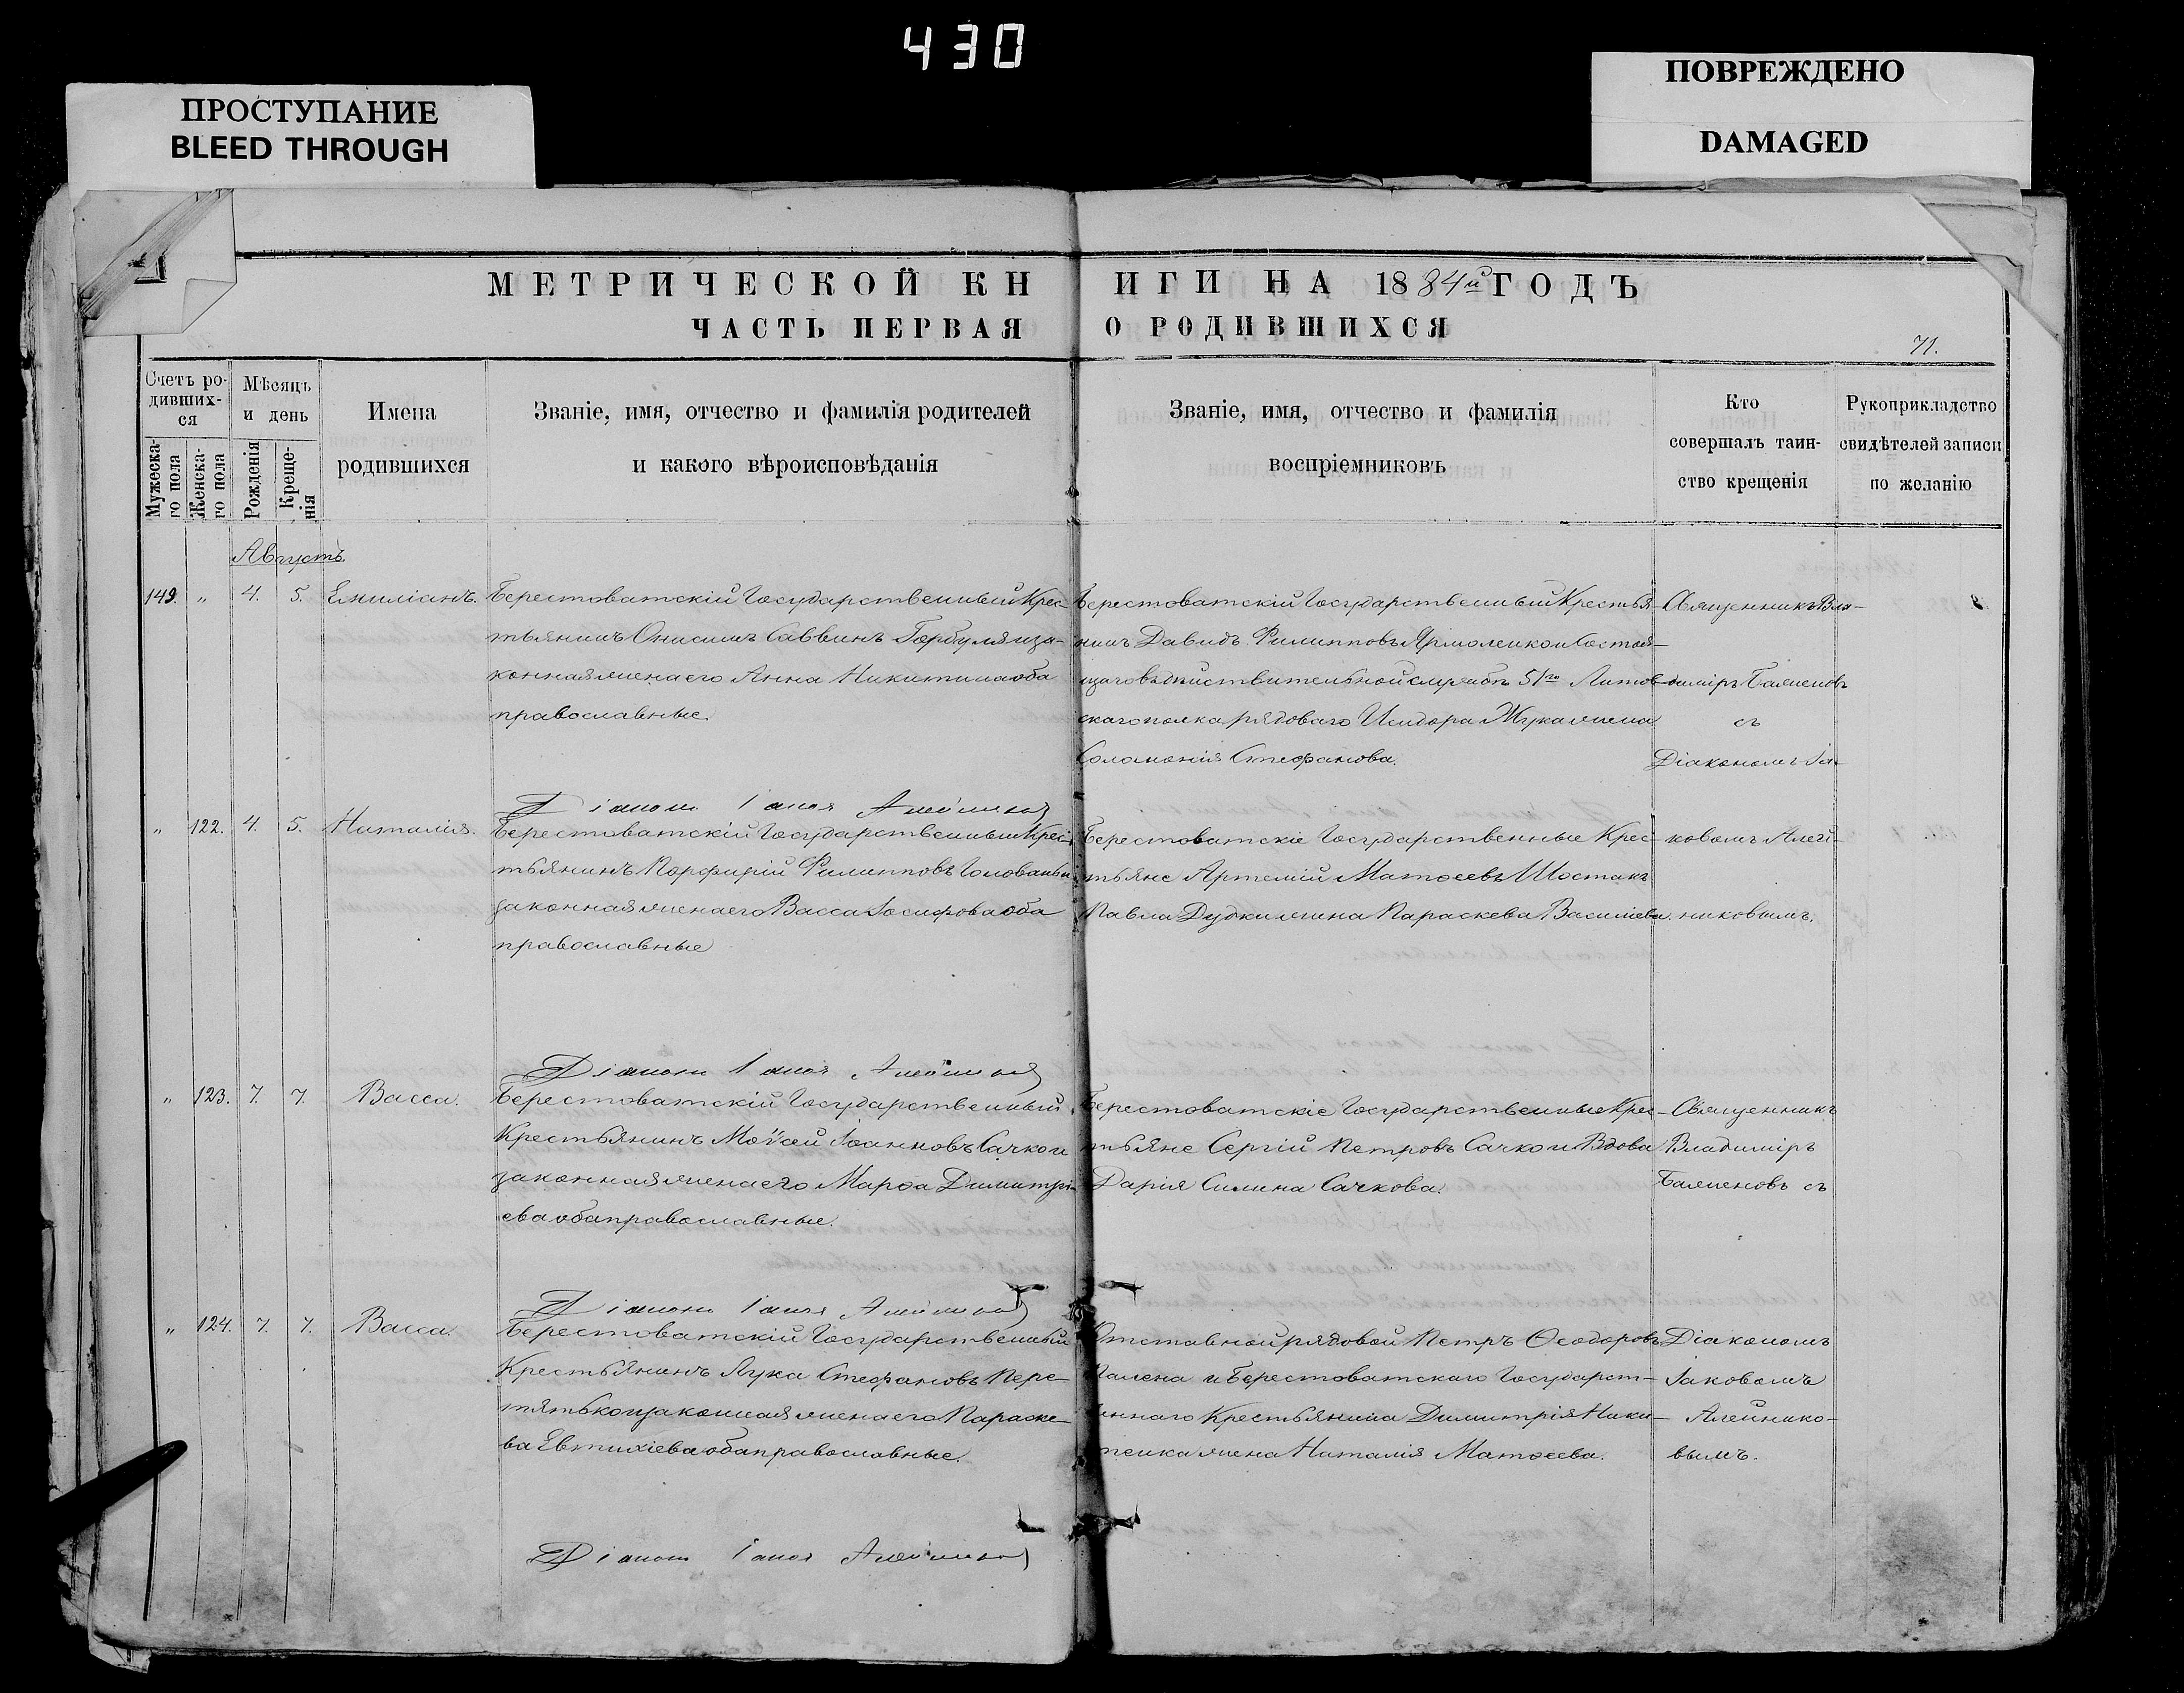 430
ПРОСТУПАНИЕ
BLEED THROUGH
ПОВРЕЖДЕНО
DAMAGED
МЕТРИЧЕСКОЙ КНИГИ НА 1884й ГОДЪ
ЧАСТЬ ПЕРВАЯ О РОДИВШИХСЯ
71.
Счетъ ро-
дивших-
ся
Мужеска-
го пола
Женска-
го пола
Мѣсяцъ
и день
Рожденія
Креще-
нія
Имена
родившихся
Званіе, имя, отчество и фамилія родителей
и какого вѣроисповѣданія
Званіе, имя, отчество и фамилія
воспріемниковъ
Кто
совершалъ таин-
ство крещенія
Рукоприкладство
свидѣтелей записи
по желанію
Августъ.
149. " 4. 5. Емиліанъ.
Берестоватскій Государственный Крес-
тьянинъ Онисимъ Саввинъ Горбуля и за-
конная жена его Анна Никитина оба
православные.
Берестоватскій Государственный Крестья-
нинъ Давидъ Филипповъ Ярмоленко и Состоя-
щаго въ дѣйствительной службѣ 51го Литов-
скаго полка рядоваго Исидора Жука жена
Соломонія Стефанова.
Священникъ Вла-
диміръ Баженовъ
съ
Діакономъ Іа-
Діаконъ Іаковъ Алейниковъ
" 122. 4. 5. Наталія.
Берестоватскій Государственный Крес-
тьянинъ Порфирій Филипповъ
законная жена его Васса Іосифова оба
православные
Берестоватскіе Государственные Крес-
тьяне Артемій Матѳеевъ Шостакъ
Павла Дудки жена Параскева Василіева.
ковомъ Алей-
никовымъ.
Діаконъ Іаковъ Алейниковъ
" 123. 7. 7. Васса.
Берестоватскій Государственный
Крестьянинъ Моѵсей Іоанновъ Сачко и
законная жена его Марѳа Димитрі-
ева оба православные.
Берестоватскіе Государственные Крес-
тьяне Сергій Петровъ Сачко и Вдова
Дарія Силина Сачкова.
Священникъ
Владиміръ
Баженовъ съ
Діаконъ Іаковъ Алейниковъ
" 124. 7. 7. Васса.
Берестоватскій Государственный
Крестьянинъ Лука Стефановъ Пере-
тятько и законная жена его Параске-
ва Евтихіева оба православные.
Отставной рядовой Петръ Ѳеодоровъ
Палена и Берестоватскаго Государст-
веннаго Крестьянина Димитрія Ники-
тенка жена Наталія Матѳеева.
Діакономъ
Іаковомъ
Алейнико-
вымъ.
Діаконъ Іаковъ Алейниковъ